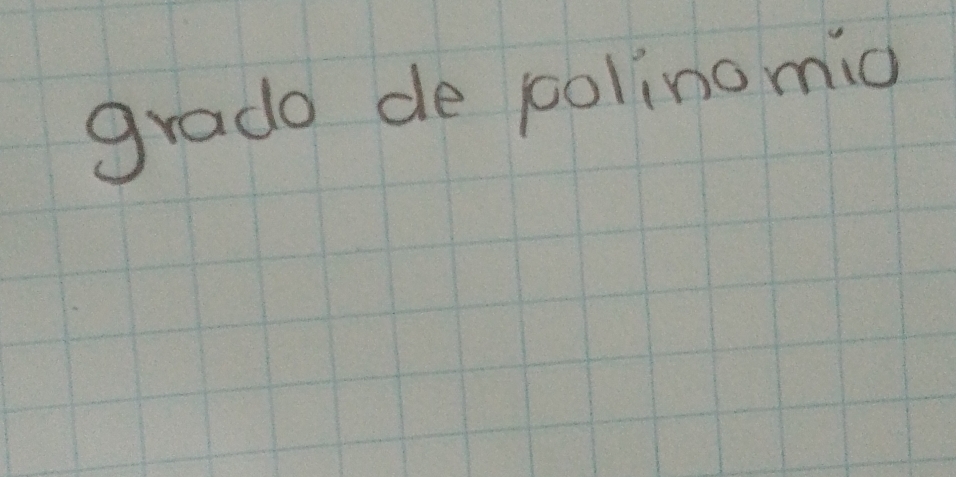 grado de polinomio